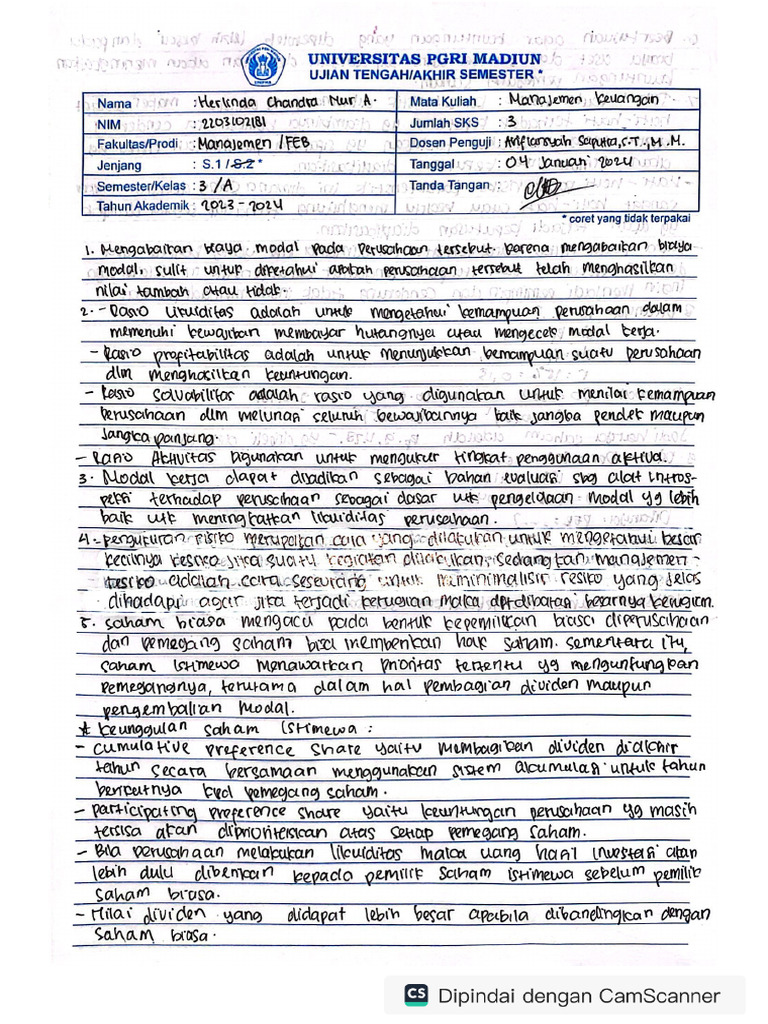 UNIVERSITAS PGRI MADIUN
UJIAN TENGAH/AKHIR SEMESTER *
Nama : Herlinda Chandra Nur A.
Mata Kuliah : Manajemen Keuangan
NIM : 2203102181
Jumlah SKS : 3
Fakultas/Prodi : Manajemen / FEB
Dosen Penguji : Arifiansyah Saputra, S.T., M.M.
Jenjang : S.1 / S.2 *
Tanggal : 04 Januari 2024
Semester/Kelas : 3 / A
Tanda Tangan :
Tahun Akademik : 2023 - 2024
* coret yang tidak terpakai
1. Mengabaikan biaya modal pada perusahaan tersebut. karena mengabaikan biaya
modal, sulit untuk diketahui apakah perusahaan tersebut telah menghasilkan
nilai tambah atau tidak.
2. - Rasio likuiditas adalah untuk mengetahui kemampuan perusahaan dalam
memenuhi kewajiban membayar hutangnya atau mengecek modal kerja.
- Rasio profitabilitas adalah untuk menunjukkan kemampuan suatu perusahaan
dlm menghasilkan keuntungan.
- Rasio Solvabilitas adalah rasio yang digunakan untuk menilai kemampuan
perusahaan dlm melunasi seluruh kewajibannya baik jangka pendek maupun
jangka panjang.
- Rasio Aktivitas digunakan untuk mengukur tingkat penggunaan aktiva.
3. Modal kerja dapat dijadikan sebagai bahan evaluasi sbg alat intros-
peksi terhadap perusahaan sebagai dasar utk pengelolaan modal yg lebih
baik utk meningkatkan likuiditas perusahaan.
4. - pengukuran risiko merupakan cara yang dilakukan untuk mengetahui besar
kecilnya resiko jika suatu kegiatan dilakukan, sedangkan manajemen -
resiko adalah cara seseorang untuk meminimalisir resiko yang jelas
dihadapi agar jika terjadi kerugian maka dpt dibatasi besarnya kerugian.
5. saham biasa mengacu pada bentuk kepemilikan biasa diperusahaan
dan pemegang saham bisa memberikan hak saham. sementara itu,
saham istimewa menawarkan prioritas tertentu yg menguntungkan
pemegangnya, terutama dalam hal pembagian dividen maupun
pengembalian modal.
* keunggulan saham istimewa :
- cumulative preference share yaitu membagikan dividen diakhir
tahun secara bersamaan menggunakan sistem akumulasi untuk tahun
berikutnya kpd pemegang saham.
- participating preference share yaitu keuntungan perusahaan yg masih
tersisa akan diprioritaskan atas setiap pemegang saham.
- Bila perusahaan melakukan likuiditas maka uang hasil investasi akan
lebih dulu diberikan kepada pemilik saham istimewa sebelum pemilik
saham biasa.
- Nilai dividen yang didapat lebih besar apabila dibandingkan dengan
saham biasa.
CS Dipindai dengan CamScanner